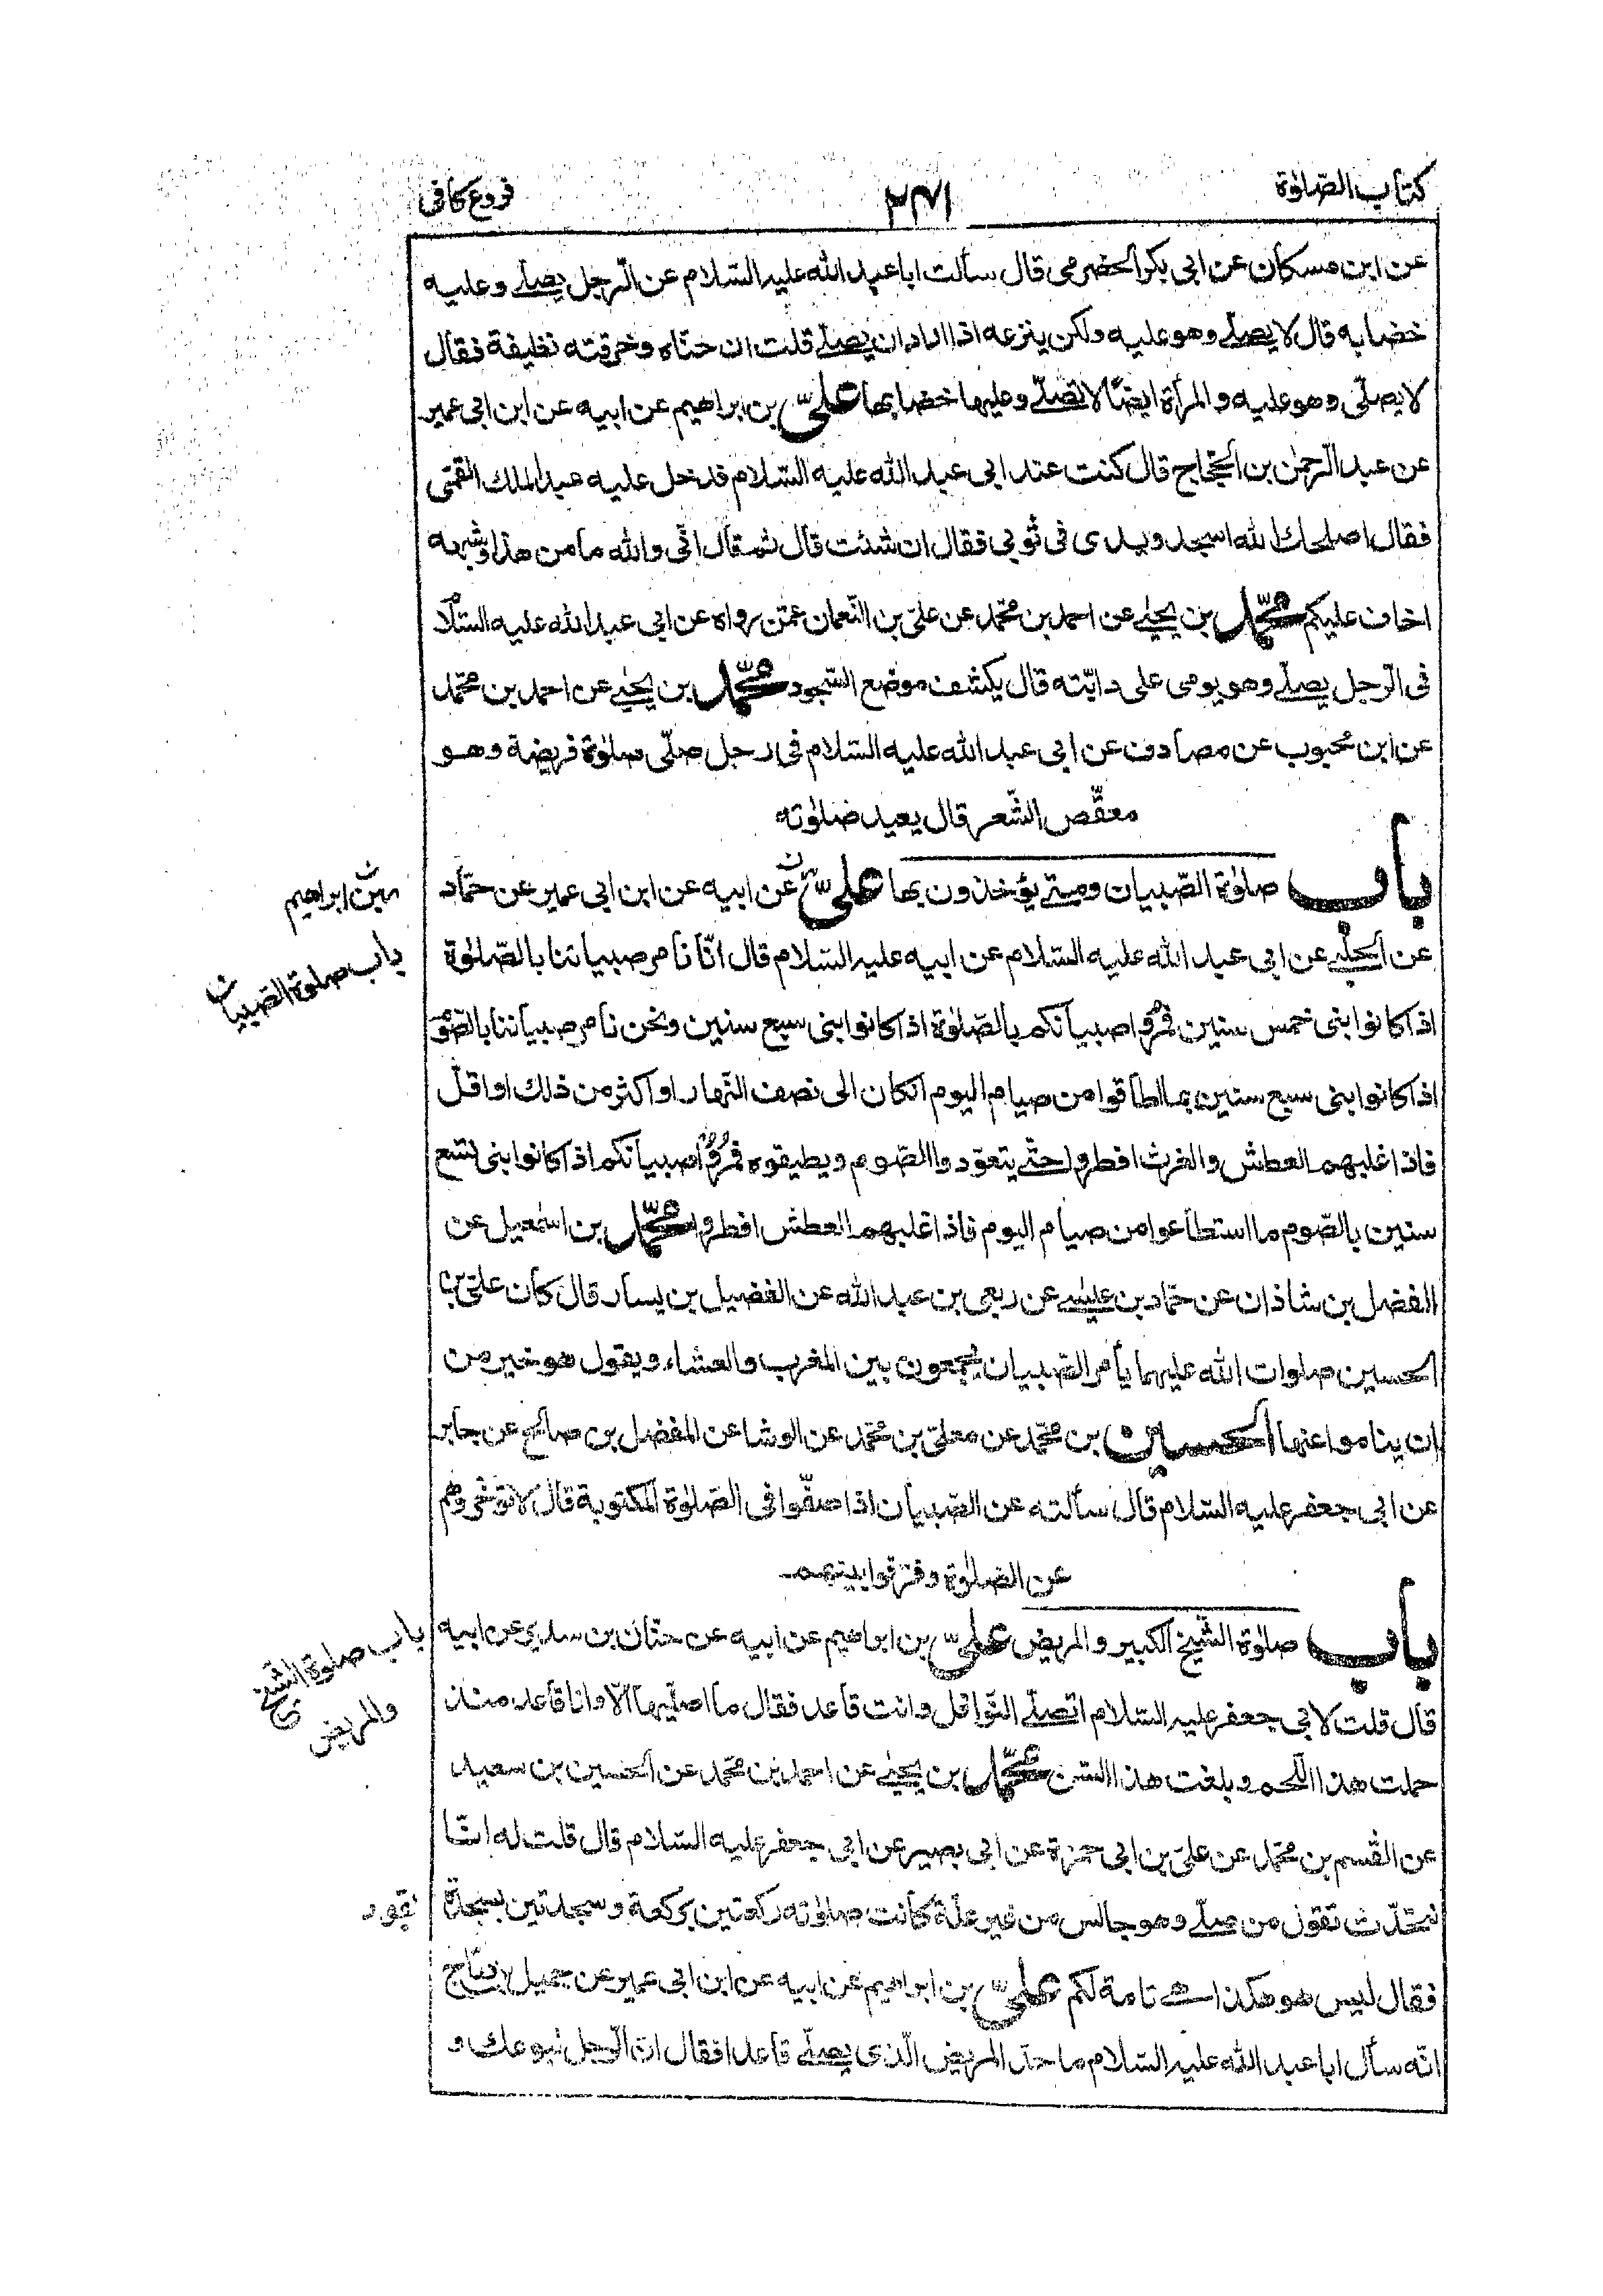 كتاب الصّلوٰة
٢٤١
فروع كافی
عن ابن مسكان عن ابی بكر الحضرمی قال سألت ابا عبد الله عليه السّلام عن الرّجل يصلّے وعليه
خضابه قال لا يصلّے وهو عليه ولكن ينزعه اذا اراد ان يصلّے قلت ان حنّاه وخرقته نظيفة فقال
لا يصلّی وهو عليه والمرأة ايضًا لا تصلّے وعليها خضابها علیّ بن ابراهيم عن ابيه عن ابن ابی عمير
عن عبد الرّحمٰن بن الحجّاج قال كنت عند ابی عبد الله عليه السّلام فدخل عليه عبد الملك القمّی
فقال اصلحك الله اسجد ويدی فی ثوبی فقال ان شئت قال ثم قال انّی والله ما من هذا وشبهه
اخاف عليكم محمّد بن يحيٰے عن احمد بن محمّد عن علیّ بن النّعمان عمّن رواه عن ابی عبد الله عليه السّلام
فی الرّجل يصلّے وهو يومی علی دابّته قال يكشف موضع السّجود محمّد بن يحيٰے عن احمد بن محمّد
عن ابن محبوب عن مصادف عن ابی عبد الله عليه السّلام فی رجل صلّی صلوٰة فريضة وهو
معقّص الشّعر قال يعيد صلوٰته
باب صلوٰة الصّبيان ومتے يؤخذون بها علیّ عن ابيه عن ابن ابی عمير عن حمّاد
بن ابراهيم
عن الحلبے عن ابی عبد الله عليه السّلام عن ابيه عليه السّلام قال انّا نأمر صبياننا بالصّلوٰة
باب صلوة الصّبيان
اذا كانوا بنی خمس سنين فمروا صبيانكم بالصّلوٰة اذا كانوا بنی سبع سنين ونحن نأمر صبياننا بالصّوم
اذا كانوا بنی سبع سنين بما اطاقوا من صيام اليوم انكان الی نصف النّهار او اكثر من ذلك او اقلّ
فاذا غلبهم العطش والغرث افطروا حتّے يتعوّدوا الصّوم ويطيقوه فمروا صبيانكم اذا كانوا بنی تسع
سنين بالصّوم ما استطاعوا من صيام اليوم فاذا غلبهم العطش افطروا محمّد بن اسمٰعيل عن
الفضل بن شاذان عن حمّاد بن عيسٰے عن ربعی بن عبد الله عن الفضيل بن يسار قال كان علیّ بن
الحسين صلوات الله عليهما يأمر الصّبيان يجمعون بين المغرب والعشاء ويقول هو خير من
ان يناموا عنها الحسين بن محمّد عن معلّی بن محمّد عن الوشا عن المفضل بن صالح عن جابر
عن ابی جعفر عليه السّلام قال سألته عن الصّبيان اذا صفّوا فی الصّلوٰة المكتوبة قال لا تؤخروهم
عن الصّلوٰة وفرّقوا بينهم
باب صلوٰة الشّيخ الكبير والمريض علیّ بن ابراهيم عن ابيه عن حنّان بن سدير عن ابيه
باب صلوة الشّيخ
والمريض
قال قلت لابی جعفر عليه السّلام اتصلّے النّوافل وانت قاعد فقال ما اصلّيها الّا وانا قاعد منذ
حملت هذا اللّحم وبلغت هذا السّن محمّد بن يحيٰے عن احمد بن محمّد عن الحسين بن سعيد
عن القٰسم بن محمّد عن علیّ بن ابی حمزة عن ابی بصير عن ابی جعفر عليه السّلام قال قلت له انّا
نتحدّث نقول من صلّے وهو جالس من غير علّة كانت صلوٰته ركعتين بركعة وسجدتين بسجدة
فقال ليس هو هكذا هے تامة لكم علیّ بن ابراهيم عن ابيه عن ابن ابی عمير عن جميل بن درّاج
انّه سأل ابا عبد الله عليه السّلام ما حدّ المريض الّذی يصلّے قاعدا فقال انّ الرّجل ليوعك و